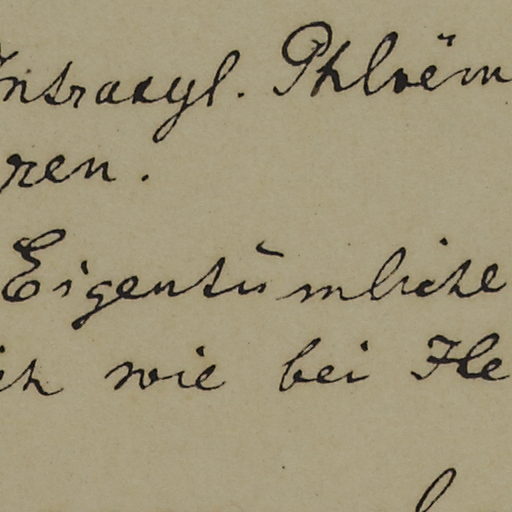 Intraxyl. Phloëm
ren.
Eigentümliche
ich wie bei He